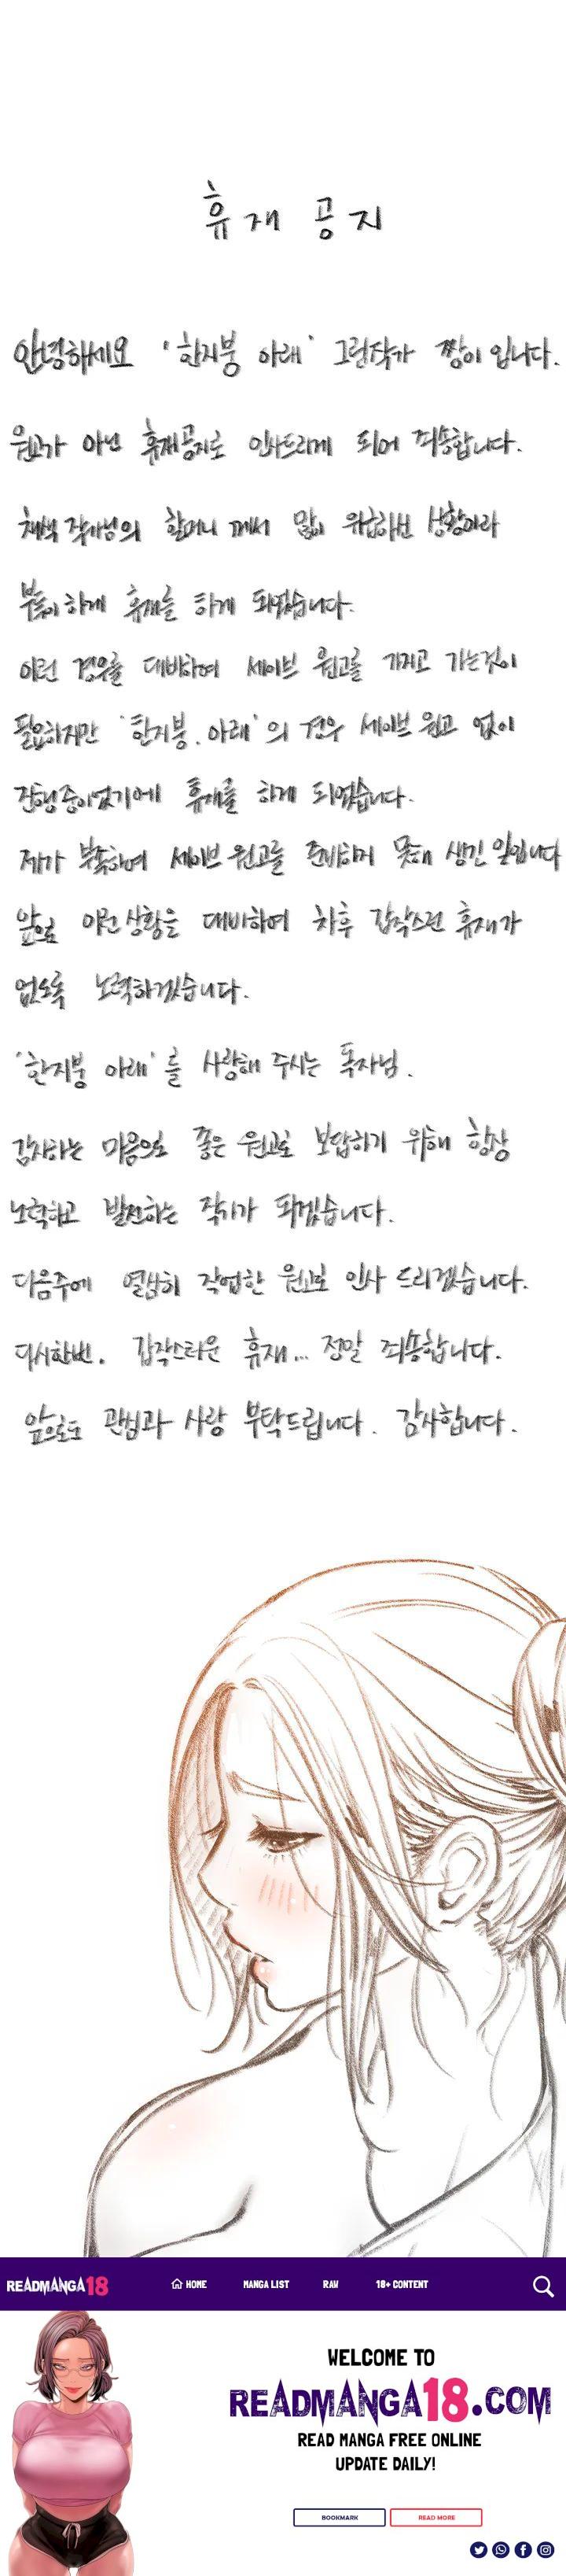 휴재 공지
안녕하세요 '한지붕 아래' 그림작가 짱이 입니다.
원고가 아닌 휴재공지로 인사드리게 되어 죄송합니다.
채색 작가님의 할머니 께서 많이 위급하신 상황이라
부득이하게 휴재를 하게 되었습니다.
이런 경우를 대비하여 세이브 원고를 가지고 가는것이
필요하지만 '한지붕.아래'의 경우 세이브 원고 없이
진행중이었기에 휴재를 하게 되었습니다.
제가 부족하여 세이브 원고를 준비하지 못해 생긴 일입니다
앞으로 이런 상황을 대비하여 차후 갑작스런 휴재가
없도록 노력하겠습니다.
'한지붕 아래'를 사랑해 주시는 독자님.
감사하는 마음으로 좋은 원고로 보답하기 위해 항상
노력하고 발전하는 작가가 되겠습니다.
다음주에 열심히 작업한 원고로 인사 드리겠습니다.
다시한번. 갑작스러운 휴재... 정말 죄송합니다.
앞으로도 관심과 사랑 부탁드립니다. 감사합니다.
READMANGA18 HOME MANGA LIST RAW 18+ CONTENT
WELCOME TO
READMANGA18.COM
READ MANGA FREE ONLINE
UPDATE DAILY!
BOOKMARK READ MORE